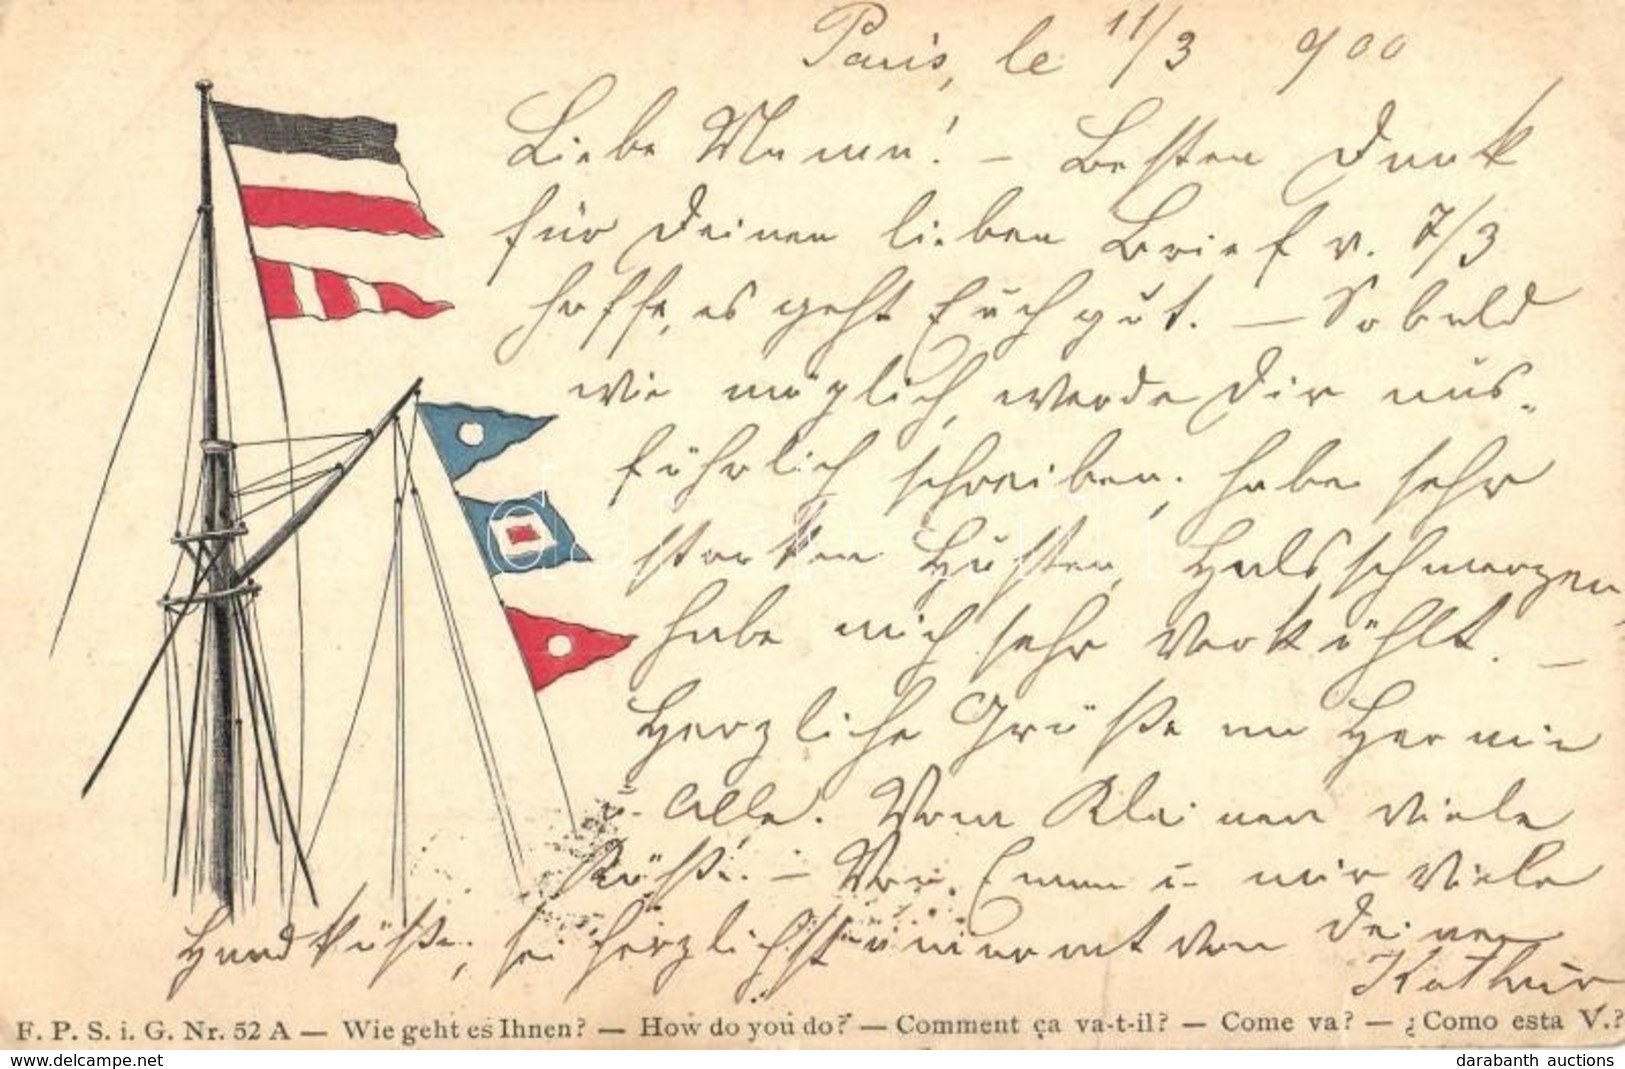 Paris, le 11/3 900
Liebe Mama! – Besten Dank
für Deinen lieben Brief v. 7/3
hoffe, es geht Euch gut. – Sobald
wie möglich, werde Dir aus-
führlich schreiben; habe sehr
starken Husten, Halsschmerzen,
habe mich sehr verkühlt. –
Herzliche Grüße an Hermin
u. Alle. Vom Kleinen viele
Küße. – Von Emma u. mir viele
Handküße, sei herzlichst umarmt von Deinem
F. P. S. i. G. Nr. 52 A — Wie geht es Ihnen? — How do you do? — Comment ça va-t-il? — Come va? — ¿Como esta V.?
darabanth
https://www.delcampe.net
darabanth auctions